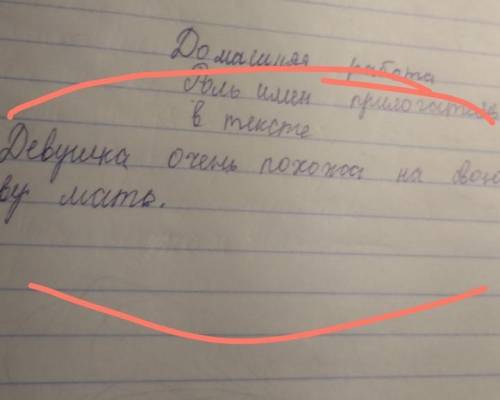 Домашняя работа
Роль имен прилогательн
в тексте
Девушка очень похожа на вою
ву мать.